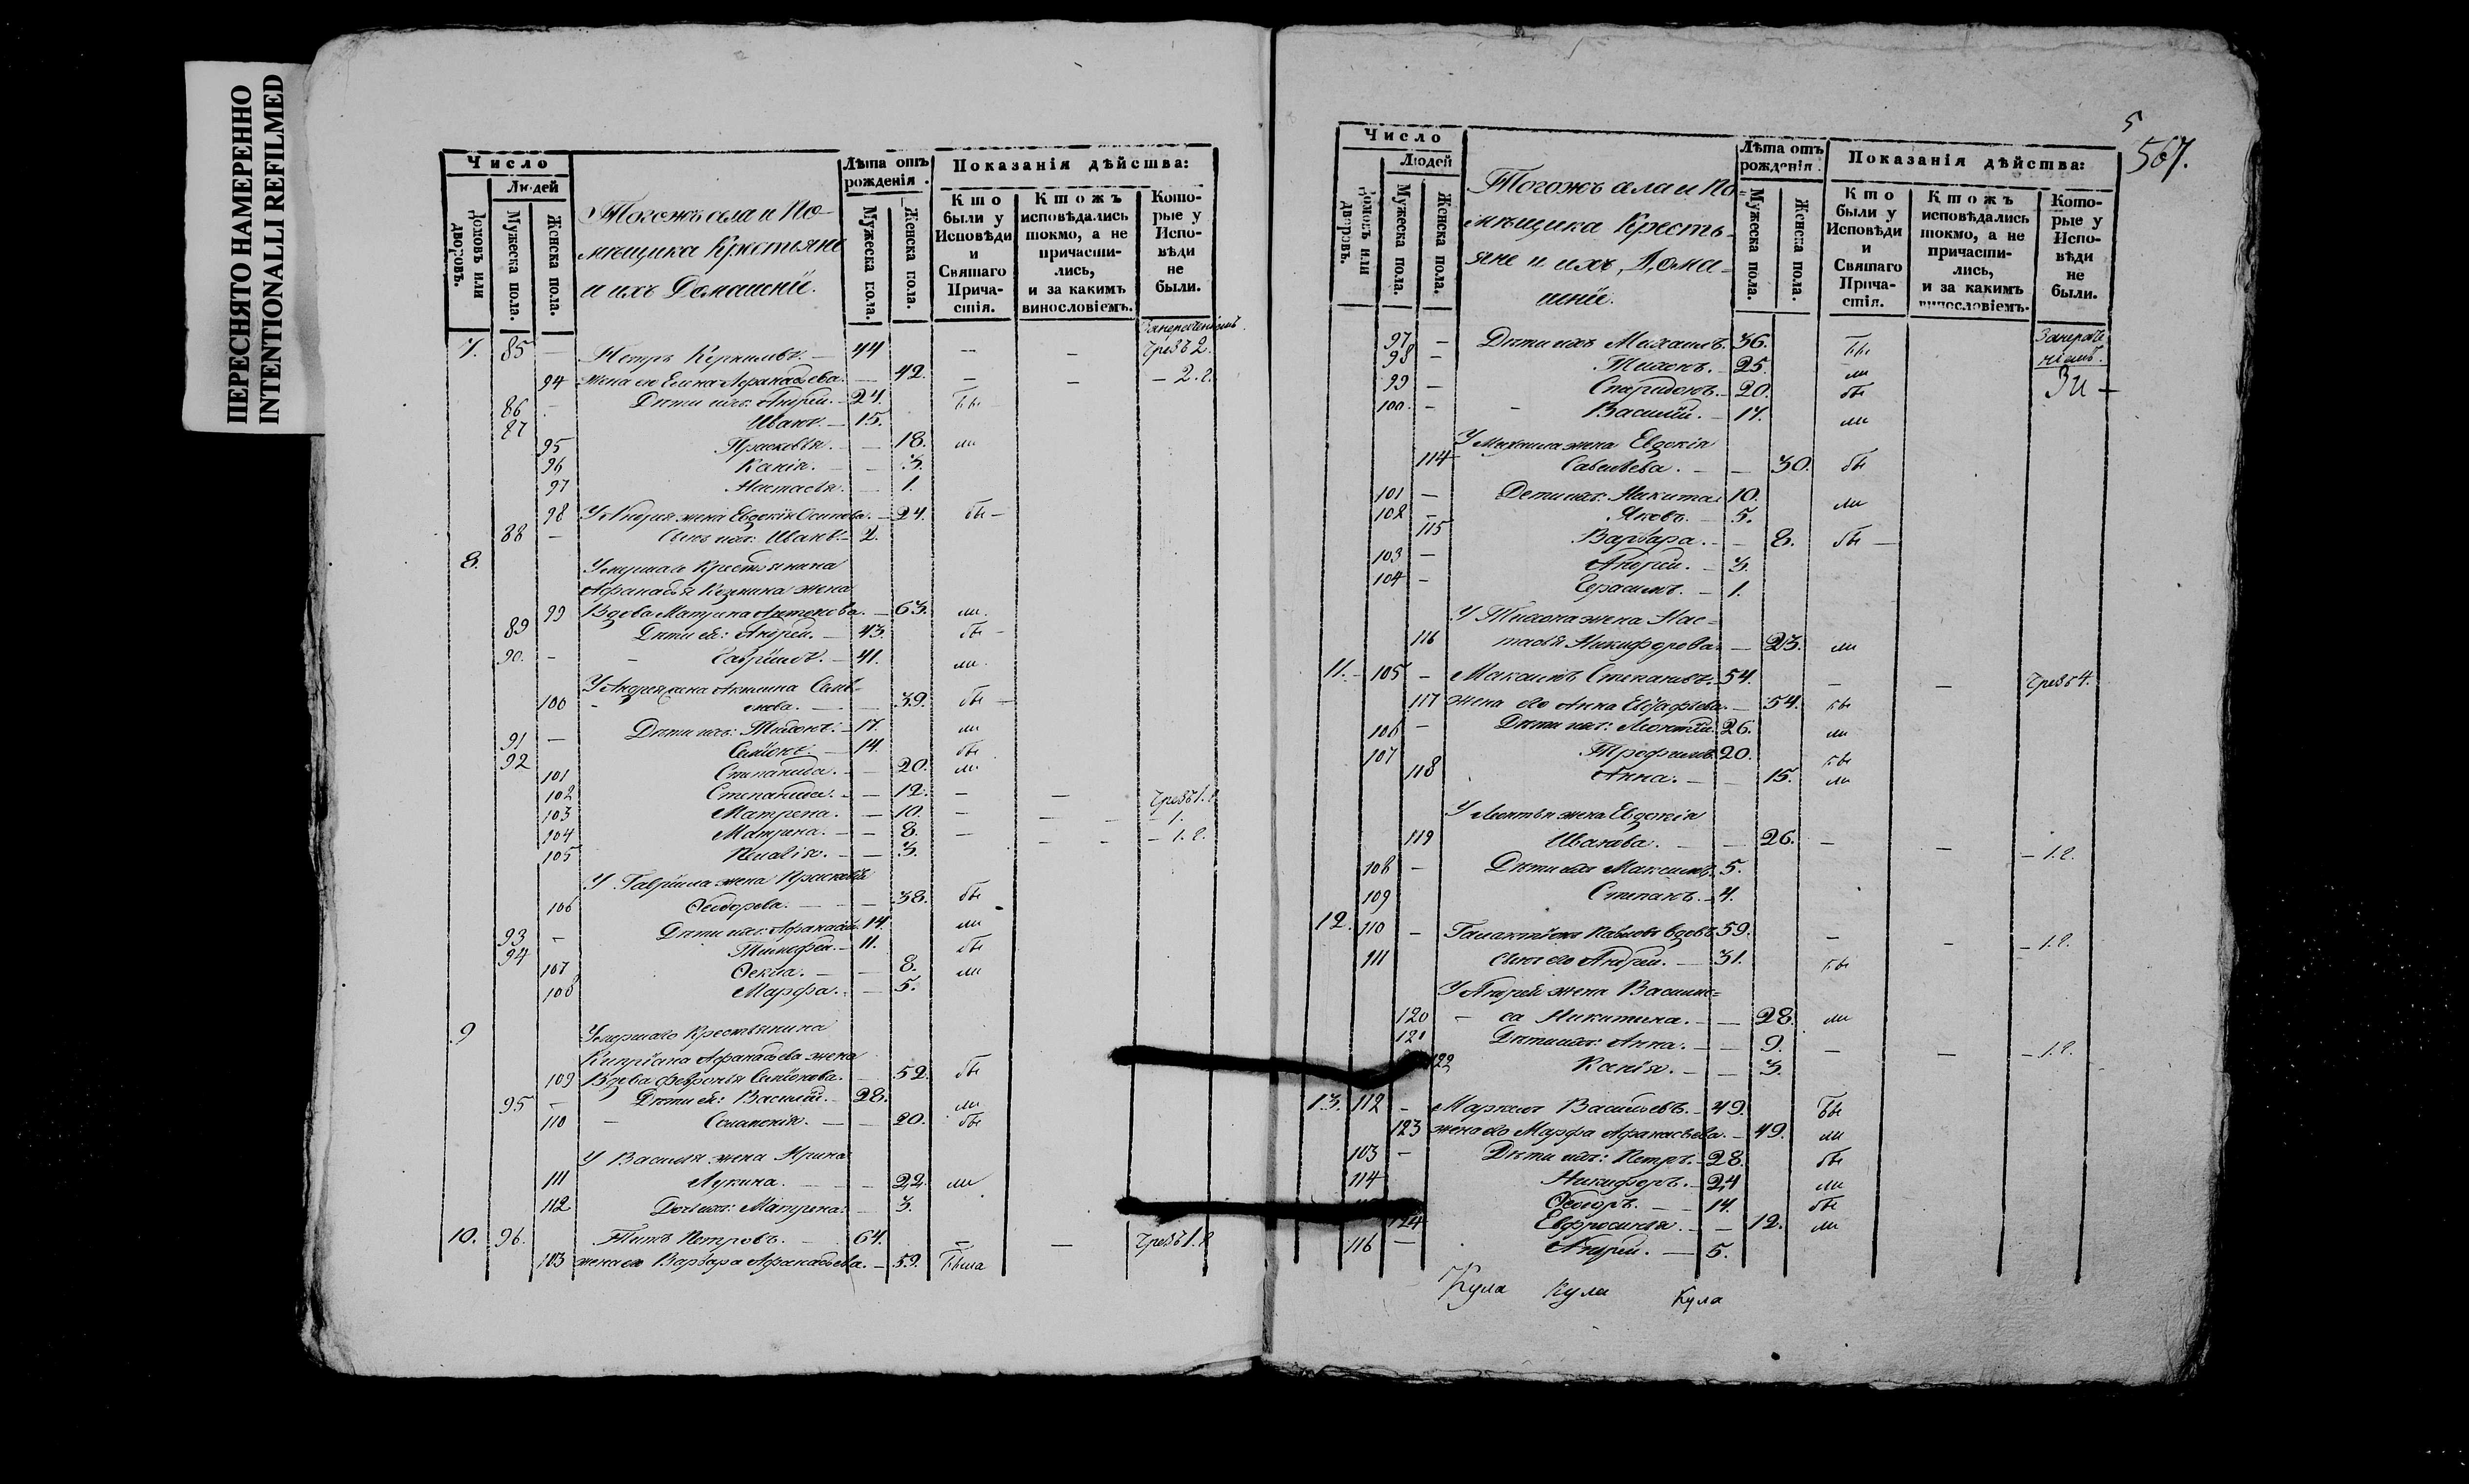 ПЕРЕСНЯТО НАМЕРЕННО
INTENTIONALLI REFILMED
Число
Людей
Домовъ или дворовъ.
Мужеска пола.
Женска пола.
Тогожъ села и По-
мѣщика Крестьяне
и ихъ Домашніи.
Лѣта отъ рожденія.
Мужеска пола.
Женска пола.
Показанія дѣйства:
Кто были у Исповѣди и Святаго Причастія.
Ктожъ исповѣдались токмо, а не причасти-лись, и за какимъ винословіемъ.
Кото-рые у Испо-вѣди не были.
7. 85 — Петръ 44 — — чрезъ 2.
94 жена его Елена Афанасьева. — 42. — — — 2. г.
86 — Дѣти ихъ: Андрей. — 24. бы
87 Иванъ. — 15.
95 Прасковья. — 18. ли
96 Ксенія. — 3.
97 Настасья. — 1.
98 У Андрея жена Евдокія Осипова. — 24. бы —
88 — Сынъ ихъ: Иванъ. — 2.
8. Умершаго Крестьянина
Афанасья жена
99 Вдова Матрена — 63. ли.
89 Дѣти ея: Андрей. — 43. бы —
90. — — Гаврiилъ. — 41. ли.
У Андрея жена
100 — 39. бы —
91 — Дѣти ихъ: Тихонъ. — 17. ли
92 Симіонъ. — 14. бы
101 Степанида. — — 20. ли
102 Степанида. — — 12. — — чрезъ 1. г.
103 Матрена. — 10. — — — 1.
104 Матрена. — — 8. — — — 1. г.
105 — — 3.
У Гавріила жена Прасковья
106 Феодорова. — — 38. бы
93 — Дѣти ихъ: Афанасій. 14. ли
94 Тимофей. — 11. бы
107 Фекла. — — 8. ли
108 Марфа. — 5.
9 Умершаго Крестьянина
Кипріана Афанасьева жена
109 Вдова Февронья Симіонова. — 52. бы
95 — Дѣти ея: Василій. — 28. ли
110 — Соломонія. — — 20. бы
У Василья жена Ирина
111 Лукина. — — 22. ли
112 Дочь ихъ: Матрена. — 3.
10. 96. Титъ Петровъ. — 64. — — чрезъ 1. г.
103 жена его Варвара Афанасьева. — 59. была
5
567.
Число
Людей
Домовъ или дворовъ.
Мужеска пола.
Женска пола.
Тогожъ села и По-
мѣщика Кресть-
яне и ихъ Дома-
шніи.
Лѣта отъ рожденія.
Мужеска пола.
Женска пола.
Показанія дѣйства:
Кто были у Исповѣди и Святаго Прича-стія.
Ктожъ исповѣдались токмо, а не причасти-лись, и за какимъ винословіемъ.
Кото-рые у Испо-вѣди не были.
97 — Дѣти ихъ Михаилъ. 36. бы
98 — Тихонъ. — 25. ли
99 — Спиридонъ. — 20. бы
100. — — Василій. — 17. ли
У Михаила жена Евдокія
114 Савельева. — — 30. бы
101 — Дети ихъ: Никита 10. ли
102 — Яковъ. — 5.
115 Варвара. — — 8. бы —
103 — Андрей. — 3.
104 — Герасимъ. — 1.
У Тихона жена Нас-
116 тасья Никифорова. — 23. ли
11. — 105 — Максимъ Степановъ. 54. — — чрезъ 4.
117 жена его Анна Евграфьева. — 54. бы
106 — Дѣти ихъ: Леонтій. 26. ли
107 Трофимъ. 20. бы
118 Анна. — — 15. ли
У Леонтья жена Евдокія
119 Иванова. — — 26. — — — 1. г.
108 — Дѣти ихъ Максимъ. 5.
109 Степанъ. — 4.
12. 110 — Галактіонъ Павловъ вдовъ. 59. — — — 1. г.
111 сынъ его Андрей. — 31. бы
У Андрея жена Василис=
120 — са Никитина. — — 28. ли
121 Дѣти ихъ: Анна. — — 9. — — — 1. г.
122 Ксенія. — — 3.
13. 112 — Маркелъ Васильевъ. — 49. бы
123 жена его Марфа Афанасьева. — 49. ли
103 — Дѣти ихъ: Петръ. — 28. бы
114 Никифоръ. — 24 ли
Феодоръ. — — 14. бы
124 Евфросинья. — — 12. ли
116 — Андрей. — 5.
Кула Кула Кула